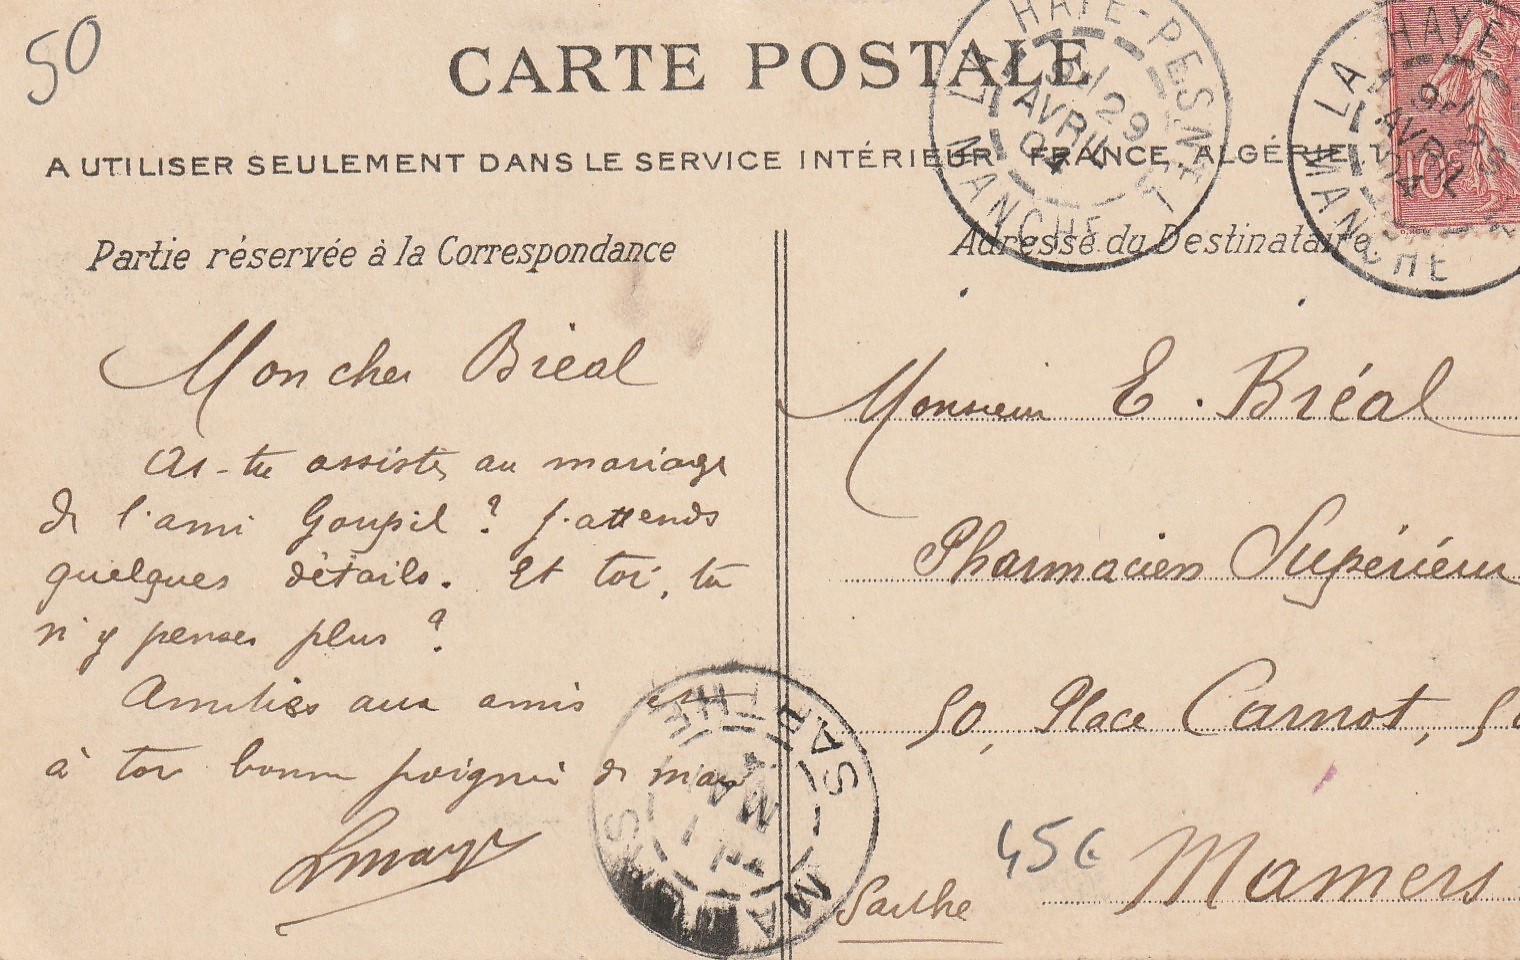 50
CARTE POSTALE
A UTILISER SEULEMENT DANS LE SERVICE INTÉRIEUR FRANCE, ALGÉRIE
LA HAYE-PESNEL
29
AVRIL
04
MANCHE
LA HAYE
AVRIL
04
MANCHE
10c
Partie réservée à la Correspondance
Mon cher Bréal
As-tu assisté au mariage
de l'ami Goupil ? J'attends
quelques détails. Et toi, tu
n'y penses plus ?
Amitiés aux amis et
à toi bonne poignée de main
Adresse du Destinataire
Monsieur E. Bréal
Pharmacien Supérieur
50, Place Carnot, 50
Mamers
Sarthe
45€
MAMERS
SARTHE